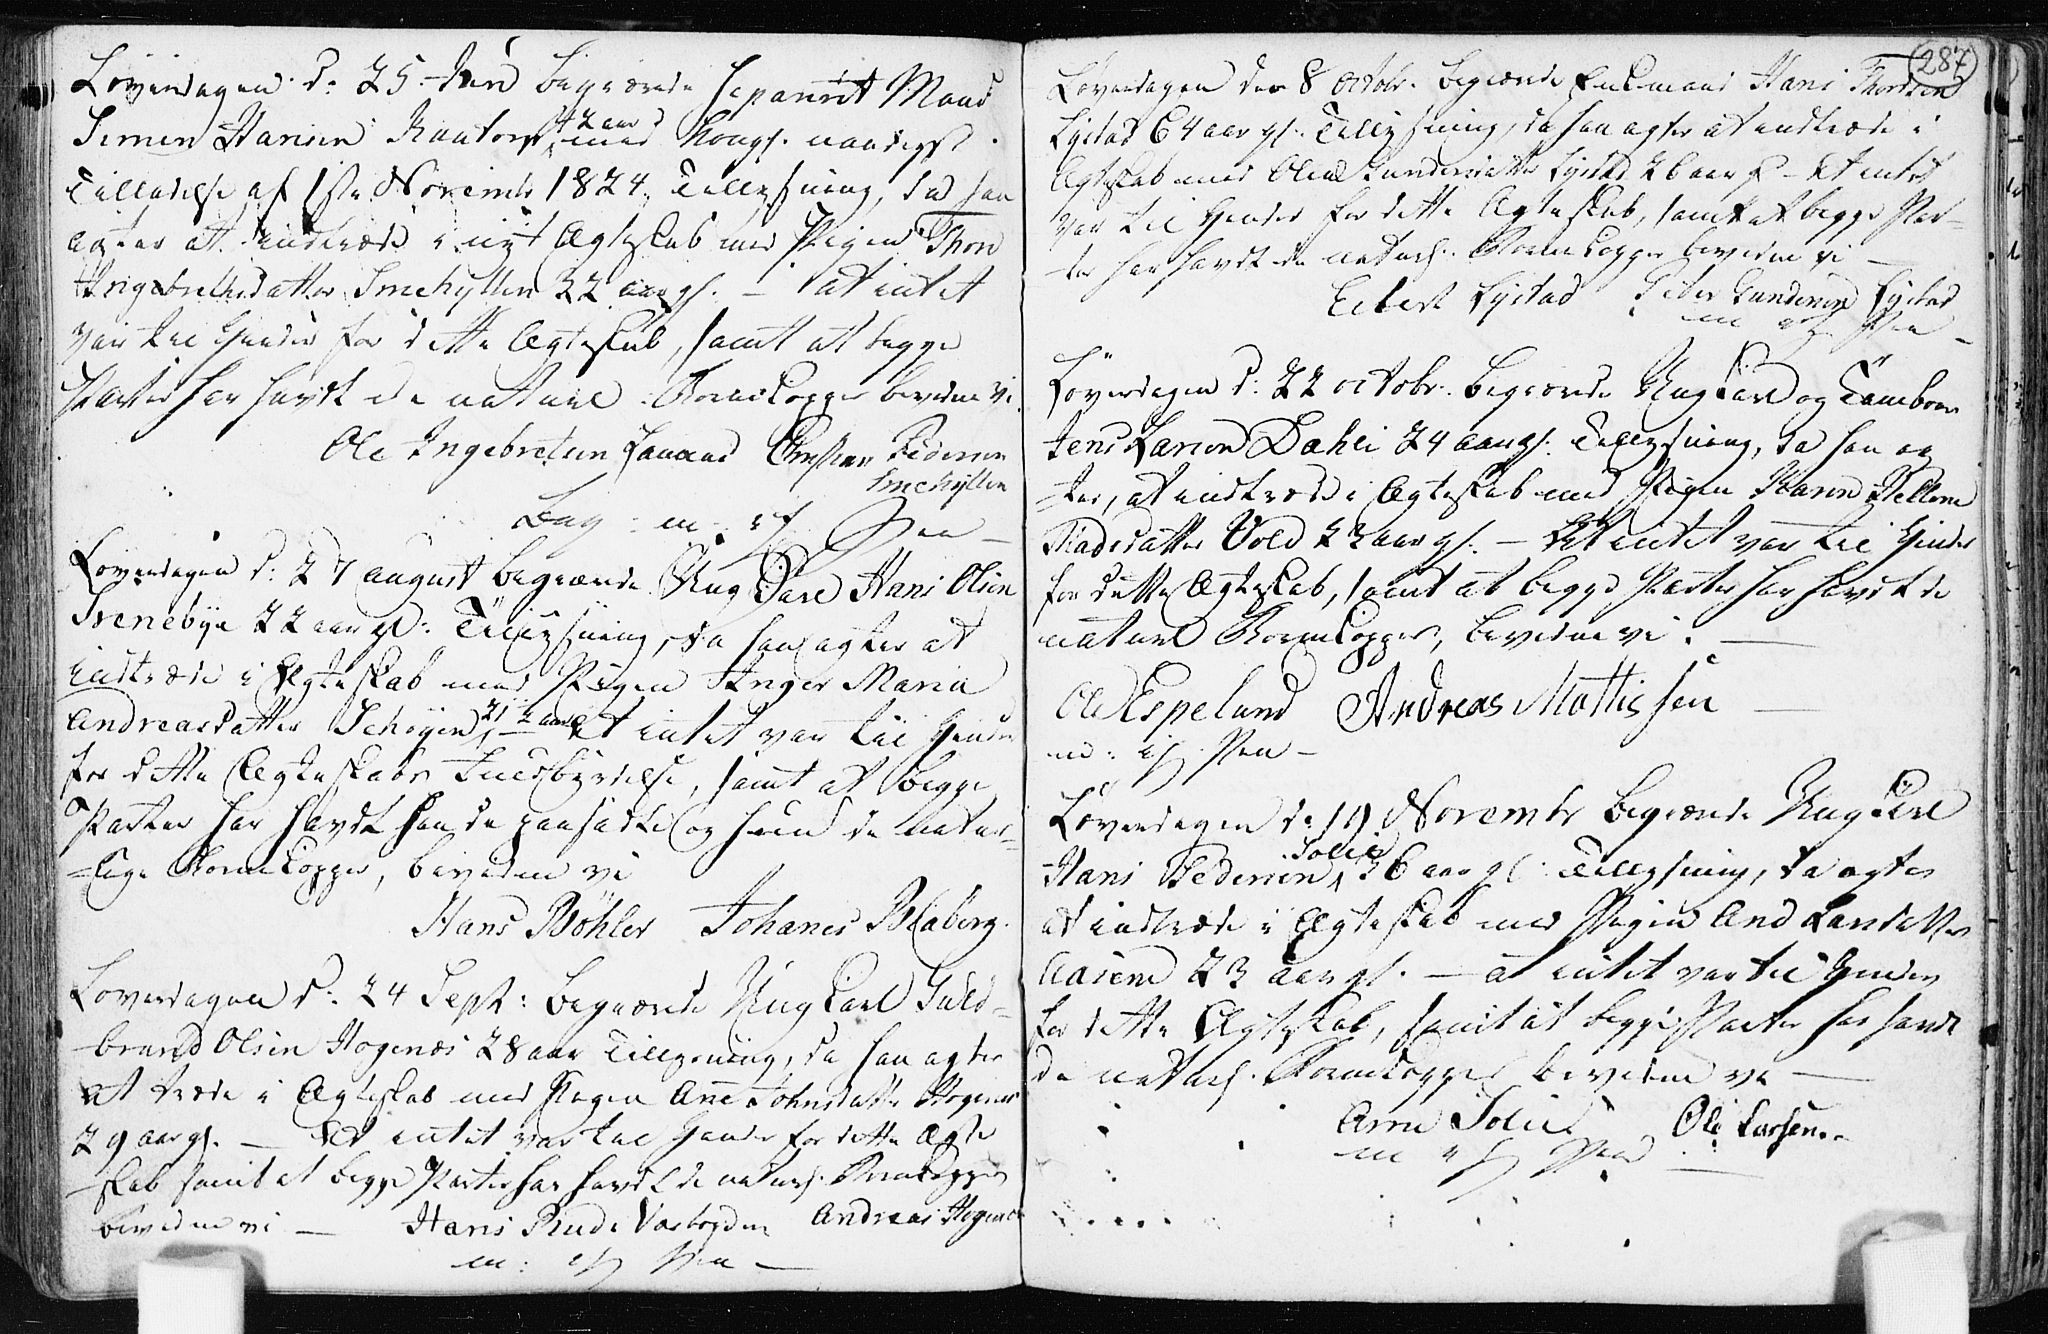 Løverdagen d: 25 Juni begiærede separerit Mand
Simen Hansen Raatorp 42 aar med Kongl. naadigst
Tilladelse af 1ste Novembr 1824, Tillysning, da han
agter at indtræde i nyt Ægteskab med Pigen Thon
Ingebrethsdatter Smehytten 32 aar gl. – at intet
var til Hinder for dette Ægteskab, samt at begge
Parter har havdt de naturl: Børnekopper bevidner vi
Ole Ingebretsen Christian Pedersen
Smehytten
m: i f Pen –
Løverdagen d: 27 august begiærede Ung Karl Hans Olsen
Svenebye 22 aar gl: Tillysning, da han agter at
indtræde i Ægteskab med Pigen Inger Maria
Andreasdatter Schøyen, 21 – 2 aar at intet var til Hinder
for dette Ægteskabs Fuldbyrdelse, samt at begge
Parter har havdt han de paasadte og hun de natur-
-lige Børnekopper, bevidner vi
Hans Bøhler Johanes Blaberg.
Løverdagen d: 24 Sept: begiærede Ung Karl Guld-
brand Olsen Hogenæs 28 aar Tillysning, da han agter
at træde i Ægteskab med Pigen Ane Johnsdatter Hogenæs
29 aar gl. – At intet var til Hinder for dette Ægte
skab samt at begge Parter har havdt de naturl. Børnekopper
bevidner vi – Hans Rud Andreas Hogenæs
m: i f Pen –
287
Løverdagen den 8 octobr. begiærede Enkemand Hans Thordsen
Lystad 64 aar gl. Tillysning, da han agter at indtræde i
Ægteskab med Olea Gundersdatter Lystad 26 aar gl – At intet
var til Hinder for dette Ægteskab, samt at begge Par-
ter har havdt de naturl. Børnekopper bevidner vi –
Eilert Lystad Peder Gundersen Lystad
m i f Pen –
Løverdagen d: 22 octobr. begiærede Ung Karl og Tambour
Jens Larsen Dahli 24 aar gl. Tillysning, da han ag
-ter, at indtræde i Ægteskab med Pigen Karen Pellene
Madsdatter Vold 23 aar gl. – At intet var til Hinder
for dette Ægteskab, samt at begge Parter har havdt de
naturl Børnekopper, bevidner vi. –
Ole Espelund Andreas Mattissen –
m: i f. Pen –
Løverdagen d: 19 Novembr begiærede Ung Karl
Hans Pedersen Solie 36 aar gl: Tillysning, da agter
at indtræde i Ægteskab med Pigen And Larsdatter
Aasem 23 aar gl. – at intet var til Hinder
for dette Ægteskab, samt at begge Parter har havdt
de naturl. Børnekopper bevidner vi –
Arne Solie Ole Larsen
m i f Pen –